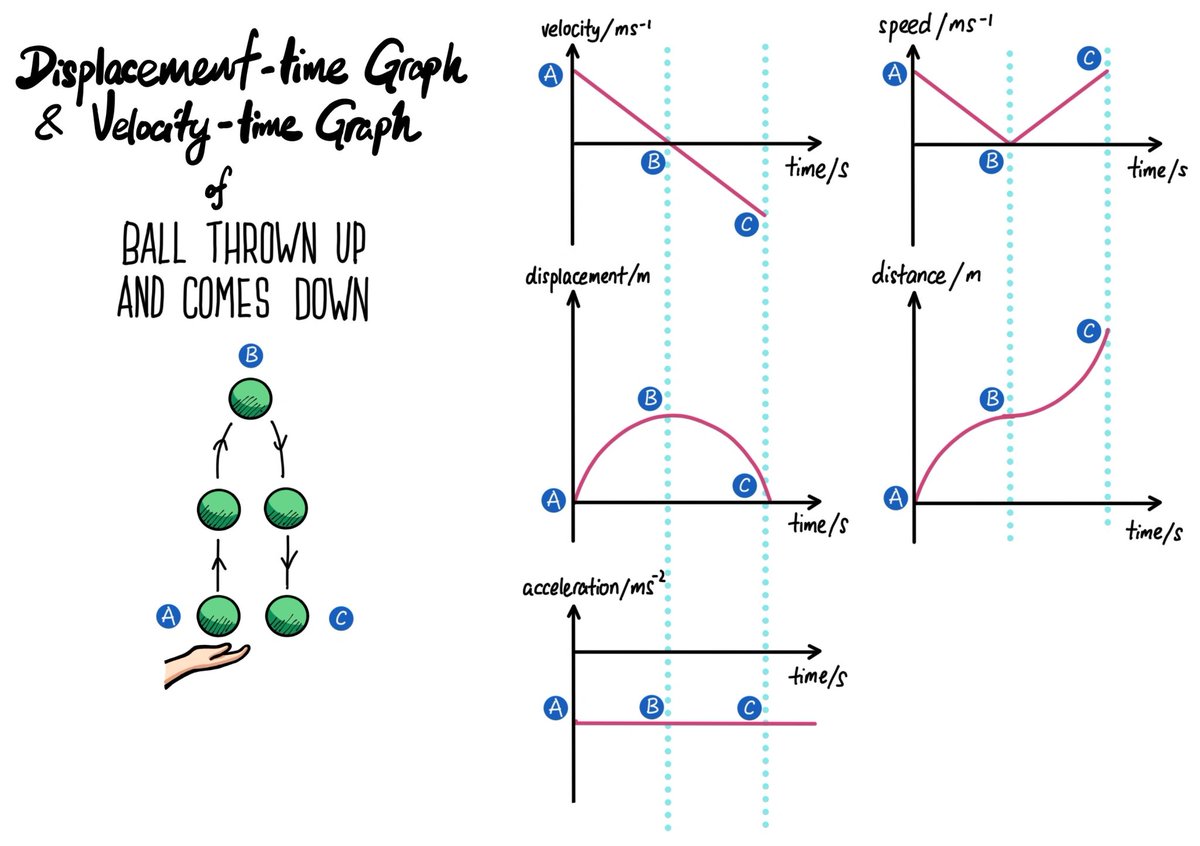 Displacement-time Graph
& Velocity-time Graph
of
BALL THROWN UP
AND COMES DOWN
B
A
C
velocity/ms⁻¹
A
B
time/s
C
displacement/m
B
A
C
time/s
acceleration/ms⁻²
time/s
A
B
C
speed/ms⁻¹
A
C
B
time/s
distance/m
C
B
A
time/s